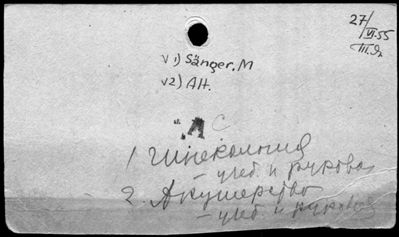 27/VI-55
III.Я.
v 1) Sänger, M
v 2) Alt.
"А С
1 Гинекология
– учеб. и руковод
2. Акушерство
– учеб. и руковод